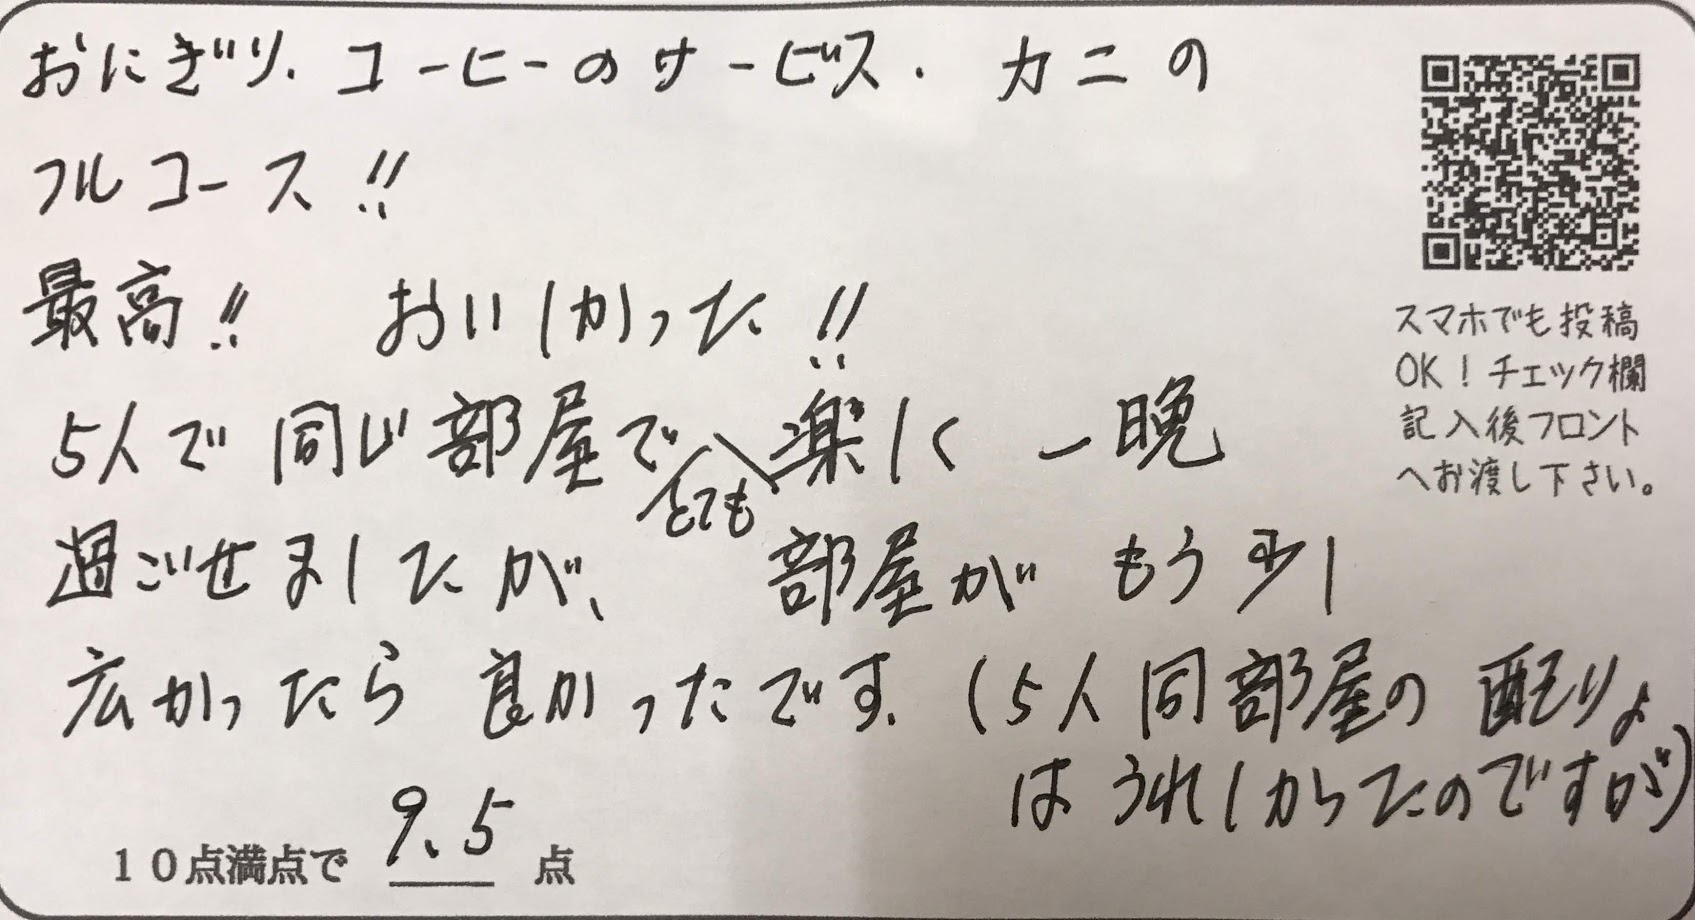 おにぎり、コーヒーのサービス、カニの
フルコース!!
最高!! おいしかった!!
5人で同じ部屋でとても楽しく一晩
過ごせましたが、部屋がもう少し
広かったら良かったです。(5人同部屋の配りょ
はうれしかったのですが)
10点満点で 9.5 点
スマホでも投稿
OK!チェック欄
記入後フロント
へお渡し下さい。